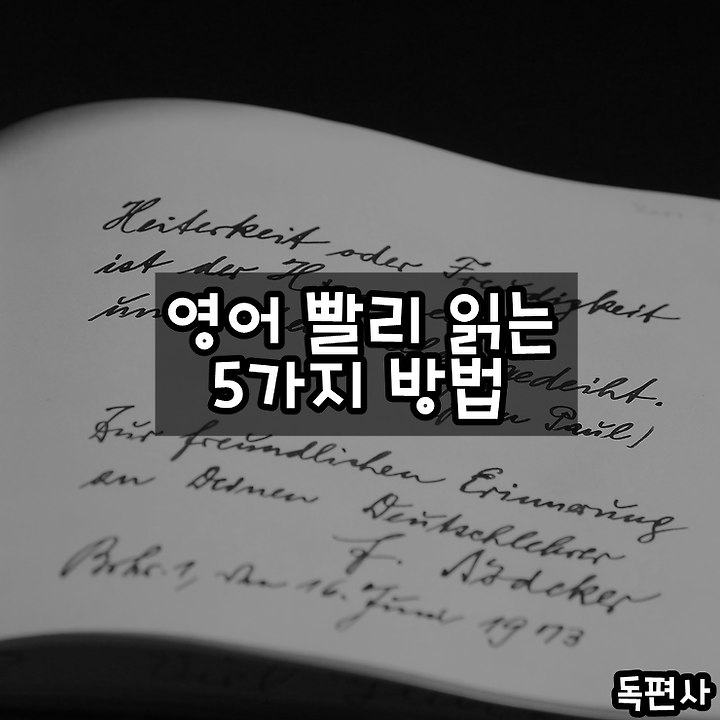 Heiterkeit oder Freudigkeit
ist der H
un
gedeiht.
Paul)
영어 빨리 읽는
5가지 방법
Zur freundlichen Erinnerung
an Deinen Deutschlehrer
F.
den 16. Juni 1973
독편사